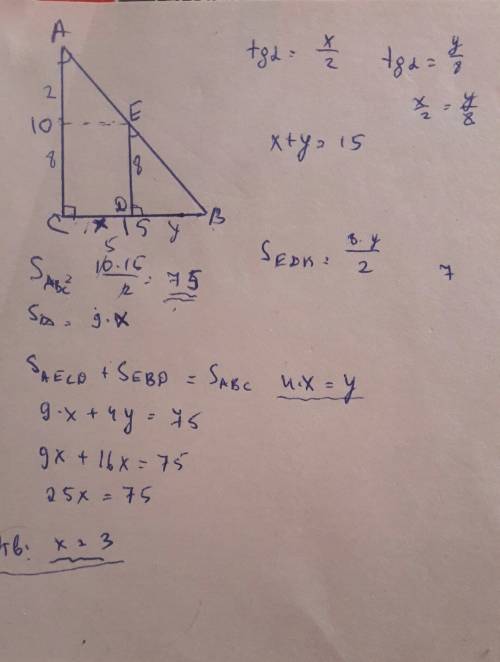 A
2
10
8
E
8
C
x
D
15
y
B
tgα = x/2 tgα = y/8
x/2 = y/8
x+y = 15
S_ABC = 10·15/2 = 75
5
S_EDK = 8·y/2
7
S = 9·x
S_AECD + S_EBD = S_ABC 4·x = y
9·x + 4y = 75
9x + 16x = 75
25x = 75
тв: x = 3